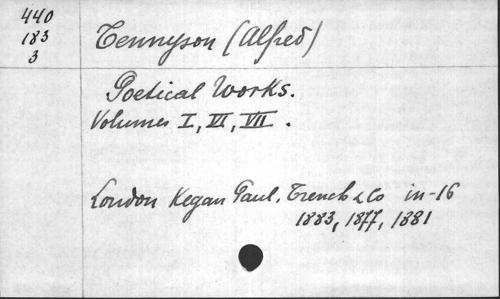 440
183
3
Tennyson (Alfred)
Poetical Works.
Volumes I, VI, VII.
London Kegan Paul, Trench & Co in-16
1883, 1877, 1881